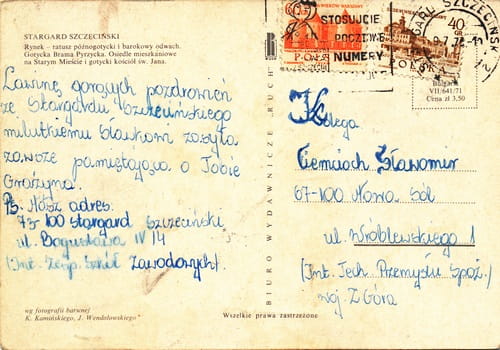 STARGARD SZCZECIŃSKI
Rynek – ratusz późnogotycki i barokowy odwach.
Gotycka Brama Pyrzycka. Osiedle mieszkaniowe
na Starym Mieście i gotycki kościół św. Jana.
Lawinę gorących pozdrowień
ze Stargardu Szczecińskiego
milutkiemu Sławkowi zasyła
zawsze pamiętająca o Tobie
Grażyna.
Ps. Nasz adres:
73-100 Stargard Szczeciński
ul. Bogusława IV 14
(Int. Zesp. Szkół Zawodowych)
wg fotografii barwnej
K. Kamińskiego, J. Wendołowskiego
BIURO WYDAWNICZE „RUCH"
Wszelkie prawa zastrzeżone
STOSUJCIE
POCZTOWE
NUMERY
STARGARD SZCZECIŃSKI
40
GR
POLSKA
VII/641/71
Cena zł 3,50
Kolega
Ciemcioch Sławomir
67-100 Nowa Sól
ul. Wróblewskiego 1
(Int. Tech. Przemysłu Spoż.)
woj. Z Góra